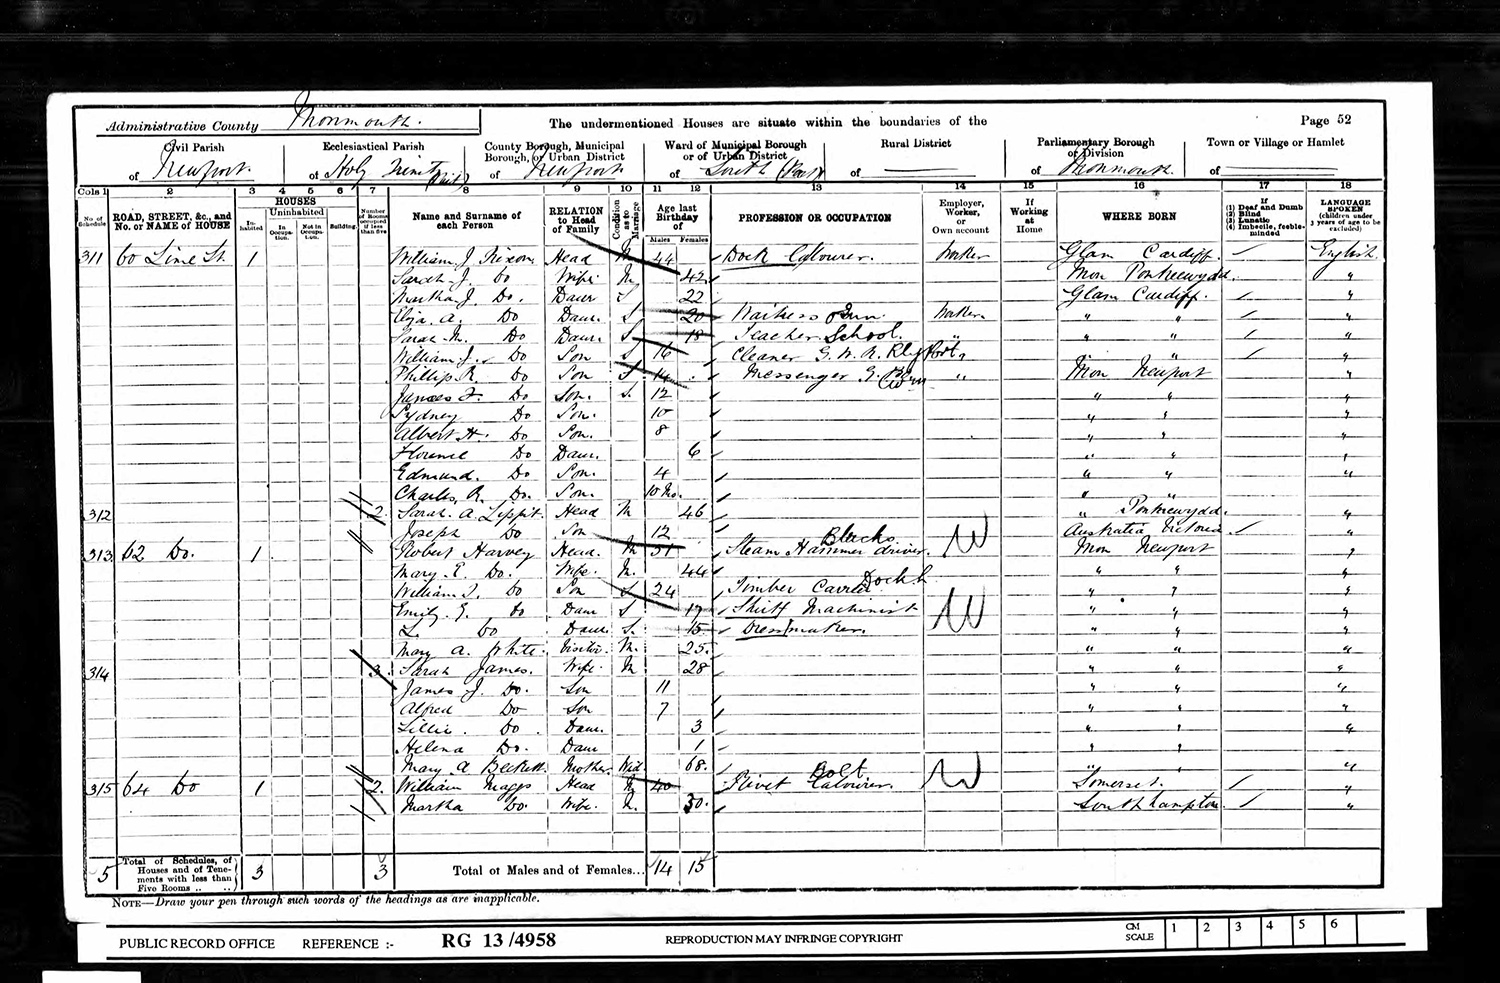 Administrative County Monmouth.
The undermentioned Houses are situate within the boundaries of the
Page 52
Civil Parish of Newport.
Ecclesiastical Parish of Holy Trinity (Part)
County Borough, Municipal Borough, or Urban District of Newport
Ward of Municipal Borough or of Urban District of South (Part)
Rural District of
Parliamentary Borough or Division of Monmouth.
Town or Village or Hamlet of
Cols 1 2 3 4 5 6 7 8 9 10 11 12 13 14 15 16 17 18
No of Schedule
ROAD, STREET, &c., and No. or NAME of HOUSE
HOUSES
In-habited
Uninhabited
In Occupa-tion.
Not in Occupa-tion.
Building.
Number of Rooms occupied if less than five
Name and Surname of each Person
RELATION to Head of Family
Condition as to Marriage
Age last Birthday of
Males Females
PROFESSION OR OCCUPATION
Employer, Worker, or Own account
If Working at Home
WHERE BORN
If (1) Deaf and Dumb (2) Blind (3) Lunatic (4) Imbecile, feeble-minded
LANGUAGE SPOKEN (children under 3 years of age to be excluded)
311 60 Lime St. 1 William J. Head M 44 Dock Labourer. Worker Glam Cardiff. English
Sarah J. Do Wife M 42 Mon "
Martha J. Do. Daur S 22 Glam Cardiff. "
Eliza. A. Do Daur. S. 20 Waitress Worker " " "
Sarah M. Do Daur. S 18 Teacher School. " " " "
William J. Do Son S 16 Cleaner G. W. R. " " "
Phillip R. Do Son S. 14 Messenger " Mon Newport "
James Do Son. S. 12 " " "
Sydney Do Son. 10 " " "
Albert H. Do Son. 8 " " "
Florence Do Daur. 6 " " "
Edmund. Do Son. 4 " " "
Charles R. Do. Son. 10 Mo. " "
312 2. Sarah. A. Head M 46 " "
Joseph Do Son 12 Australia Victoria "
313 62 Do. 1 Robert Harvey Head. M 51 Steam Hammer driver. Mon Newport "
Mary E. Do. Wife. M. 44 " " "
William Do Son S 24 Timber Dock L " " "
Emily. E. Do Daur S 17 Shirt Machinist " " "
Do Daur. S. 15 Dressmaker. " " "
Mary A. White. Visitor. M. 25. " " "
314 3. Sarah James. Wife. M 28 " " "
James J. Do. Son 11 " " "
Alfred Do Son 7 " " "
Lillie. Do. Daur. 3 " " "
Helena Do. Daur 1 " "
Mary A Beckett. Mother. Wid. 68. " " "
315 64 Do 1 2. William Maggs Head M 40 Rivet Bolt Labourer. Somerset. "
Martha Do. Wife. M. 30. Southampton. "
5 Total of Schedules, of Houses and of Tene-ments with less than Five Rooms .. .. 3 3 Total of Males and of Females... 14 15
NOTE—Draw your pen through such words of the headings as are inapplicable.
PUBLIC RECORD OFFICE REFERENCE :- RG 13/4958 REPRODUCTION MAY INFRINGE COPYRIGHT CM SCALE 1 2 3 4 5 6